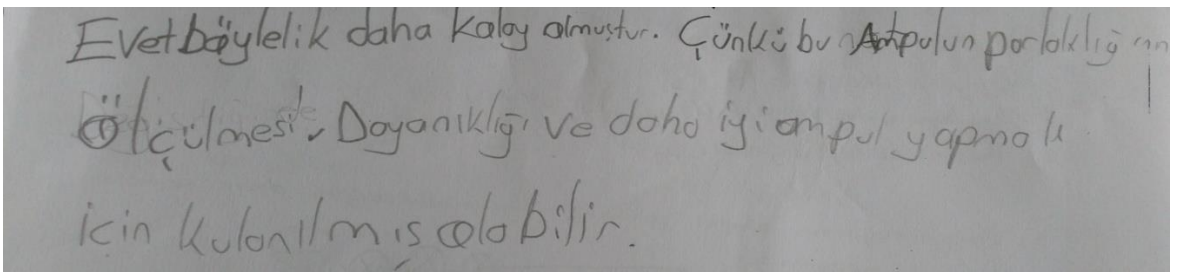 Evet böylelik daha kolay olmuştur. Çünkü bu Ampulun parlaklığının
Ölçülmesi, Dayanıklığı ve daha iyi ampul yapmak
için kulanılmış olabilir.